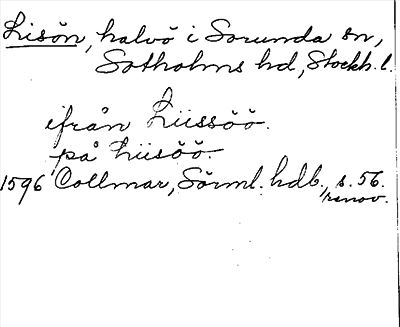 Lisön, halvö i Sorunda sn,
Sotholms hd, Stockh. l.
ifrån Liissöö.
på Liisöö.
1596 Collmar, Sörml. hdl., s. 56.
renov.